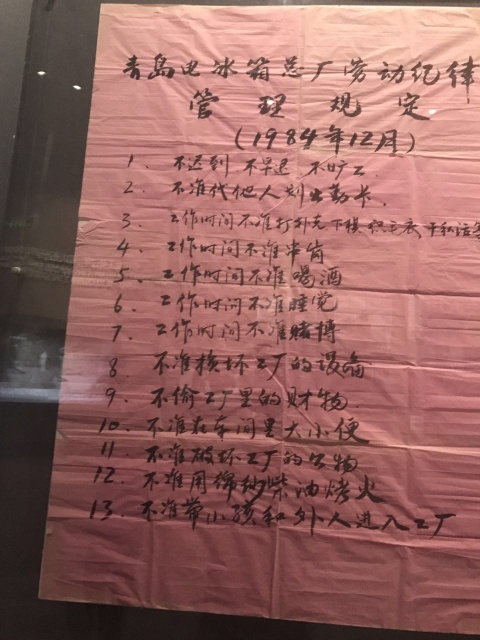 青岛电冰箱总厂劳动纪律
管理规定
(1984年12月)
1、不迟到 不早退 不旷工
2、不准代他人划出勤卡.
3、工作时间不准打扑克下棋、织毛衣、干私活等
4、工作时间不准串岗
5、工作时间不准喝酒
6、工作时间不准睡觉
7、工作时间不准赌博
8、不准损坏工厂的设备
9、不偷工厂里的财物.
10、不准在车间里大小便
11、不准破坏工厂的公物
12、不准用棉纱柴油烤火
13、不准带小孩和外人进入工厂